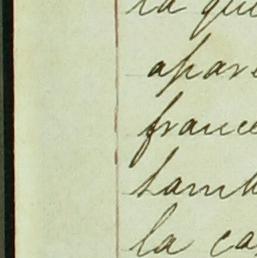 la que
apare
france
la ca